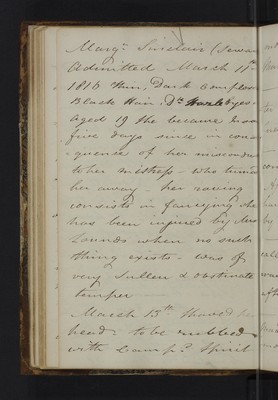 Margt Sinclair (Servan
Admitted March 11th
1816 thin, Dark Complexn
Black Hair. Dk Hazle Eyes.
Aged 19 she became
five days since in cons
-quence of her misconduc
to her mistress - who turned
her away - her raving
consists in fancying she
has been injured by Mrs
Lounds when no such
thing exists - was of
very Sullen & obstinate
temper
March 13th Shaved
head - to be rubbed
with Camp.d Spirit